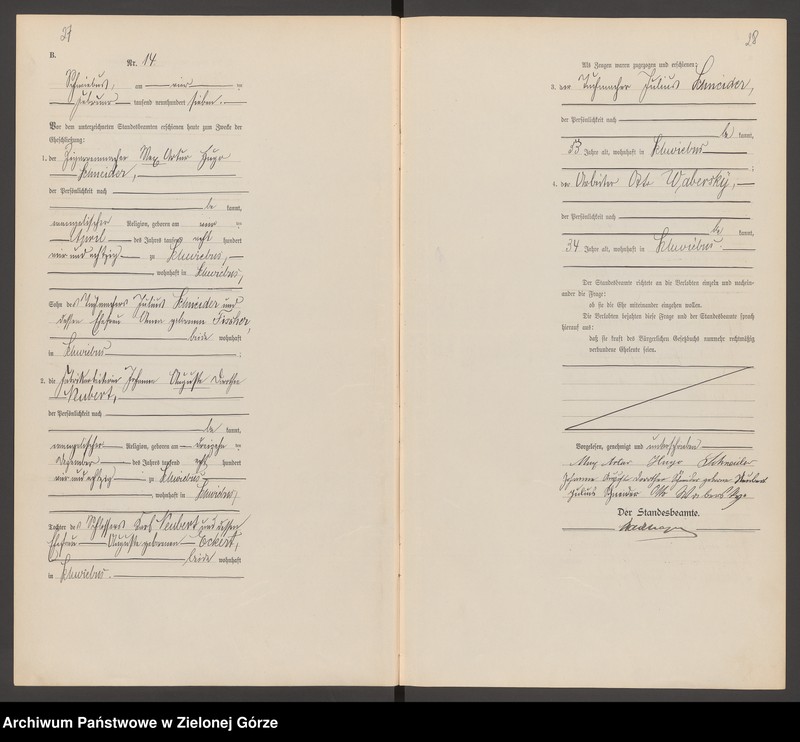 27
II.
Nr. 14.
Schwiebus, am vier ten
Februar tausend neunhundert sieben.
Vor dem unterzeichneten Standesbeamten erschienen heute zum Zwecke der
Eheschließung:
1. der Zigarrenmacher Max Artur Hugo
Schneider,
der Persönlichkeit nach
be kannt,
evangelischer Religion, geboren am ten
April des Jahres tausend acht hundert
vier und achtzig zu Schwiebus,
, wohnhaft in Schwiebus,
Sohn des Tuchmachers Julius Schneider und
dessen Ehefrau Anna geborenen Fischer,
beide wohnhaft
in Schwiebus ;
2. die Fabrikarbeiterin Johanna Auguste Dorothea
Neubert,
der Persönlichkeit nach
be kannt,
evangelischer Religion, geboren am dreizehn ten
Dezember des Jahres tausend acht hundert
vier und achtzig zu Schwiebus
, wohnhaft in Schwiebus,
Tochter des Schlossers Karl Neubert und dessen
Ehefrau Auguste geborenen Eckert,
beide wohnhaft
in Schwiebus.
28
Als Zeugen waren zugezogen und erschienen:
3. der Tuchmacher Julius Schneider,
der Persönlichkeit nach
be kannt,
53 Jahre alt, wohnhaft in Schwiebus
;
4. der Arbeiter Otto Wabersky,
der Persönlichkeit nach
be kannt,
34 Jahre alt, wohnhaft in Schwiebus.
Der Standesbeamte richtete an die Verlobten einzeln und nachein-
ander die Frage:
ob sie die Ehe miteinander eingehen wollen.
Die Verlobten bejahten diese Frage und der Standesbeamte sprach
hierauf aus:
daß sie kraft des Bürgerlichen Gesetzbuchs nunmehr rechtmäßig
verbundene Eheleute seien.
Vorgelesen, genehmigt und unterschrieben
Max Artur Hugo Schneider
Johanna Auguste Dorothea Schneider geborene Neubert
Julius Schneider Otto Wabersky
Der Standesbeamte.
Archiwum Państwowe w Zielonej Górze